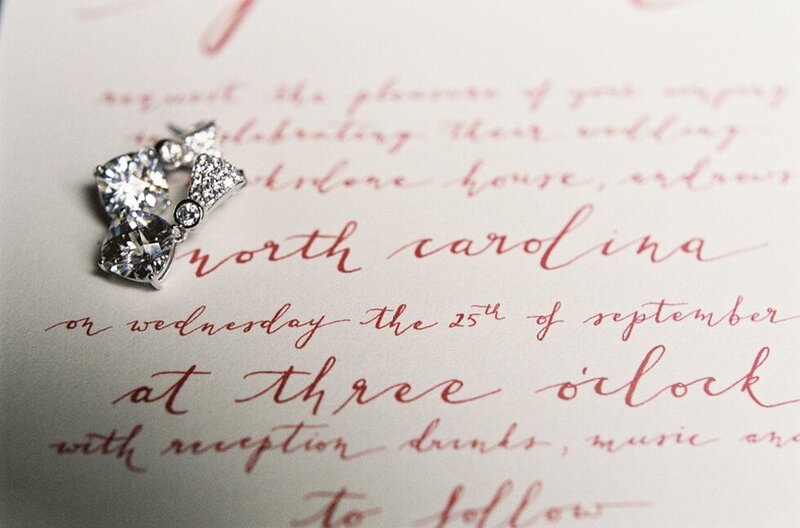 request the pleasure of your company
celebrating their wedding
house, andrews
north carolina
on wednesday the 25th of september
at three o'clock
with reception drinks, music and
to follow